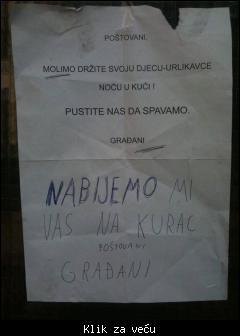 POŠTOVANI,
MOLIMO DRŽITE SVOJU DJECU-URLIKAVCE
NOĆU U KUĆI !
PUSTITE NAS DA SPAVAMO.
GRAĐANI
NABIJEMO MI
VAS NA KURAC
POŠTOVANI
GRAĐANI
Klik za veću